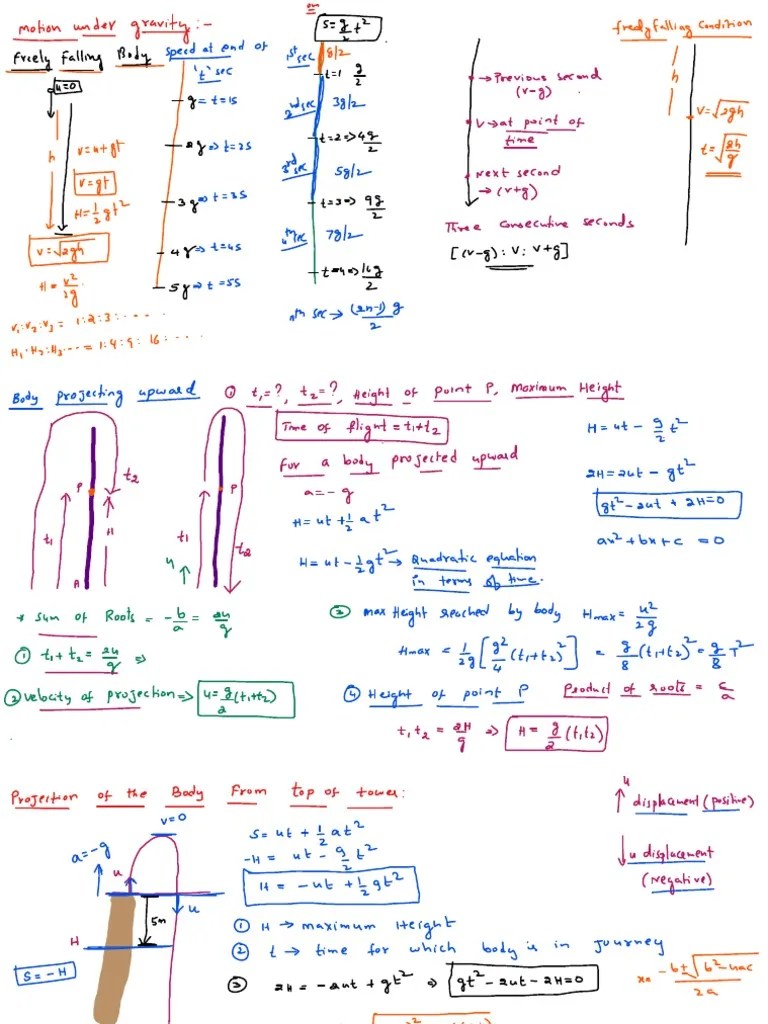 motion under gravity:-
Freely Falling Body
u=0
h
v=u+gt
v=gt
H=½gt²
v=√2gh
H=v²/2g
v₁:v₂:v₃ = 1:2:3:.....
H₁:H₂:H₃... = 1:4:9:16:.....
Speed at end of
't' sec
g = t=1s
2g ⇒ t=2s
3g ⇒ t=3s
4g ⇒ t=4s
5g ⇒ t=5s
S=g/2 t²
1st sec g/2
t=1 g/2
2nd sec 3g/2
t=2 ⇒ 4g/2
3rd sec 5g/2
t=3 ⇒ 9g/2
4th sec 7g/2
t=4 ⇒ 16g/2
nth sec → (2n-1) g/2
→ Previous second
(v-g)
v → at point of
time
Next second
→ (v+g)
Three consecutive seconds
[(v-g): v: v+g]
freely falling condition
h
v=√2gh
t=√2h/g
Body projecting upward
① t₁=?, t₂=?, Height of point P, Maximum Height
Time of flight = t₁+t₂
For a body projected upward
a=-g
H=ut+½at²
H=ut-½gt² → Quadratic equation
in terms of time.
H=ut-g/2 t²
2H=2ut-gt²
gt²-2ut+2H=0
ax²+bx+c=0
P
t₁
t₂
H
A
P
t₁
t₂
u
* sum of Roots = -b/a = 2u/g
① t₁+t₂=2u/g ⇒
② velocity of projection ⇒ u=g/2(t₁+t₂)
③ max Height reached by body Hmax=u²/2g
Hmax = 1/2g[g²/4(t₁+t₂)²] = g/8(t₁+t₂)² = g/8 T²
④ Height of point P Product of roots = c/a
t₁t₂ = 2H/g ⇒ H=g/2(t₁t₂)
Projection of the Body From top of tower:
v=0
a=-g
u
u
5m
H
S=-H
S=ut+½at²
-H = ut-g/2 t²
H = -ut+½gt²
① H → maximum Height
② t → time for which body is in journey
③ 2H = -2ut+gt² ⇒ gt²-2ut-2H=0
u
displacement (positive)
u displacement
(Negative)
x= -b±√b²-4ac/2a